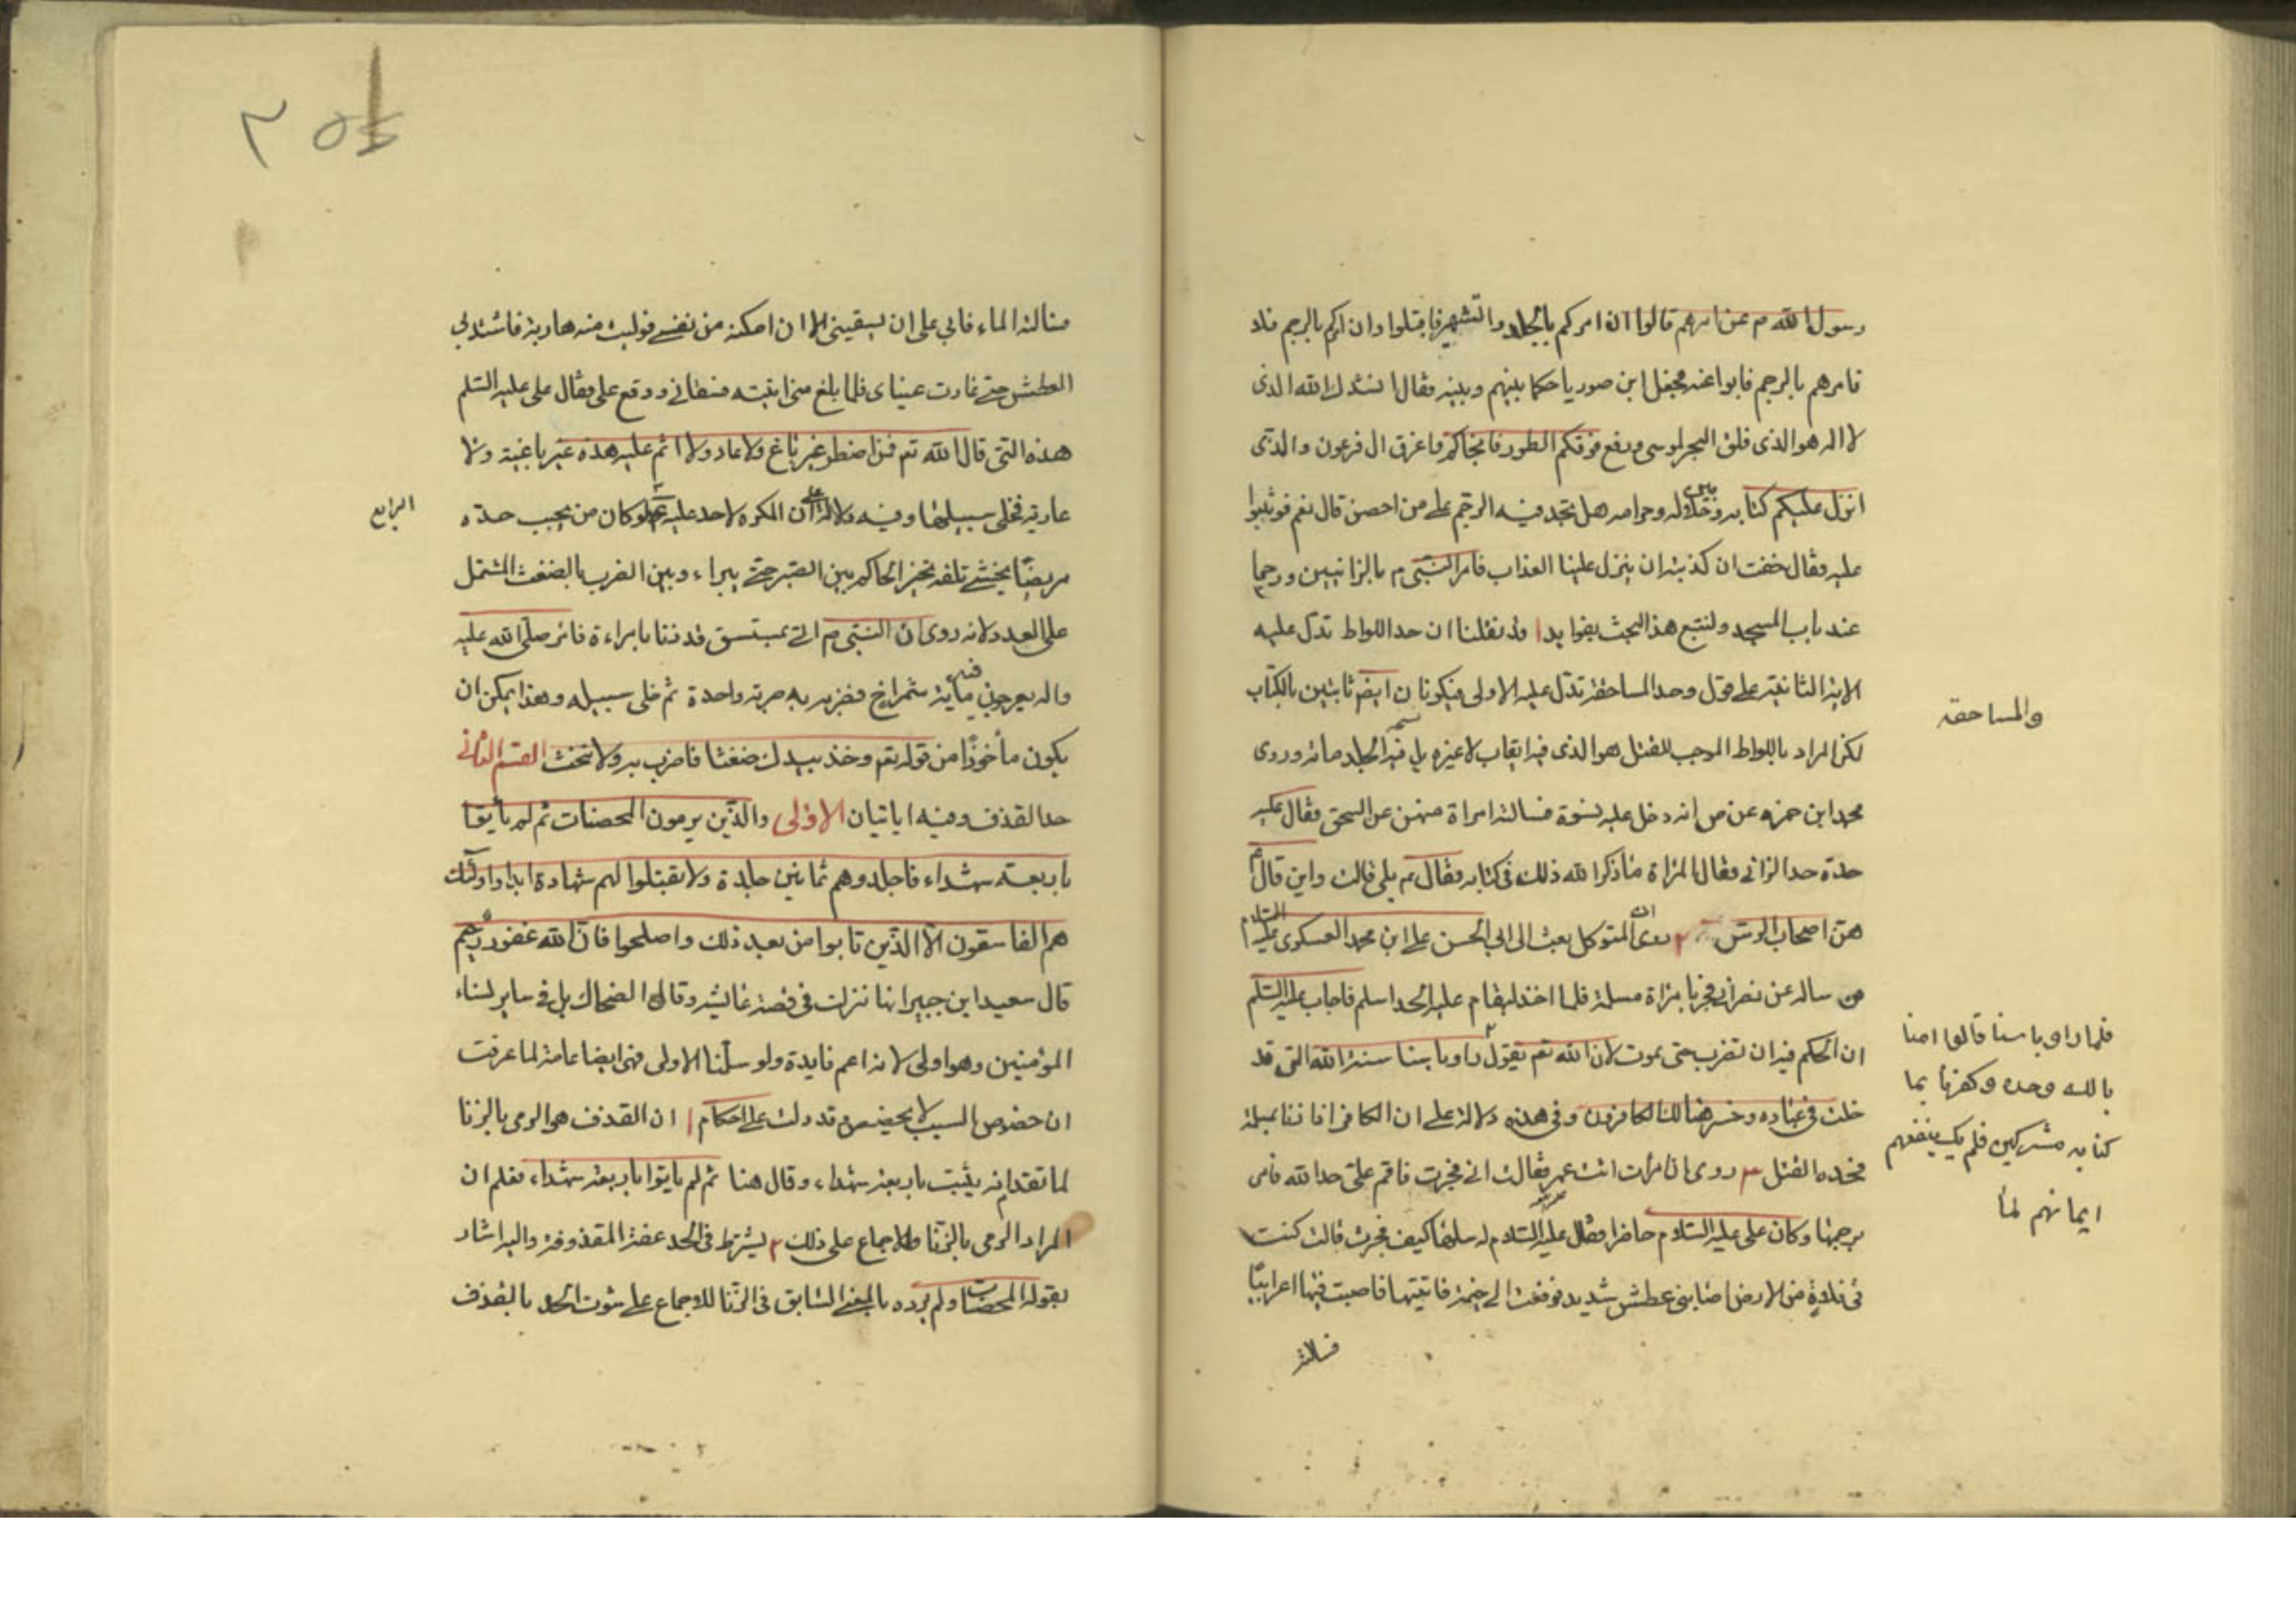 رسول الله م عن امرهم قالوا ان امركم بالجلد والتشهير فاقبلوا وان امركم بالرجم فلا
فامرهم بالرجم فابوا عنه فجعل ابن صوريا حكما بينهم وبينه فقال انشدك الله الذى
لا اله هو الذى فلق البحر لموسى ورفع فوقكم الطور فانجاكم واغرق ال فرعون والذى
انزل عليكم كتابه وحلاله وحرامه هل تجد فيه الرجم على من احصن قال نعم فوثبوا
عليه فقال خفت ان كذبته ان ينزل علينا العذاب فامر النبى م بالزانيين ورجما
عند باب المسجد ولنتبع هذا البحث بفوايد ا قد نقلنا ان حد اللواط تدل عليه
الاية الثانية على قول وحد المساحقة تدل عليه الاولى فيكونان ايض ثابتين بالكتاب
والمساحقه
لكن المراد باللواط الموجب للقتل هو الذى فيه ايقاب لا غيره بل فيه الجلد مائة وروى
محمد ابن حمزه عن ص انه دخل عليه نسوة فسالته امراة منهن عن السحق فقال عليه
حدة حد الزانى فقال المراة ما ذكر الله ذلك فى كتابه فقال ع بلى قالت واين قال
هن اصحاب الرس ٢ روى ان المتوكل بعث الى ابى الحسن على ابن محمد العسكرى عليه السلام
من ساله عن نصرانى فجر بامراة مسلمة فلما اخذ ليقام عليه الحد اسلم فاجاب عليه السلم
ان الحكم فيه ان تضرب حتى يموت لان الله تعم يقول راوا باسنا سنة الله التى قد
فلما راوا باسنا قالوا امنا
بالله وحده وكفرنا بما
كنا به مشركين فلم يك ينفعهم
ايمانهم لما
خلت فى عباده وخسر هنالك الكافرون وفى هذه دلالة على ان الكافر اذا زنا بمسلمة
فحده القتل ٣ روى ان امرات اتت عمر فقالت انى فجرت فاقم على حد الله فامر
برجمها وكان على عليه السلام حاضرا فقال عليه السلام له سلها كيف فجرت قالت كنت
فى فلاة من الارض اصابنى عطش شديد فرفعت الى خيمة فاتيتها فاصبت فيها اعرابيا
فسالته
٣٥٤
فسالته الماء فابى على ان يسقينى الا ان امكنه من نفسى فوليت منه هاربة فاشتد بى
العطش حتى غارت عيناى فلما بلغ منى اتيته فسقانى ووقع على فقال على عليه السلم
هذه التى قال الله تعم فمن اضطر غير باغ ولا عاد ولا اثم عليه هذه غير باغية ولا
عادية فخلى سبيلها وفيه دلالة على ان المكره لا حد عليه لو كان من يجب حده
الرابع
مريضا يخشى تلفه تخير الحاكم بين الصبر حتى يبراء وبين الضرب بالضغث المشتمل
على العدد ولانه روى ان النبى م اتى بمستسق قد زنا بامراءة فامر صلى الله عليه
واله بعرجون فيه ماية شمراخ فضربه به ضربة واحدة ثم خلى سبيله وهذا يمكن ان
يكون مأخوذا من قوله تعم وخذ بيدك ضغثا فاضرب به ولا تحنث القسم الثانى
حد القذف وفيه ايايتان الاولى والذين يرمون المحصنات ثم لم يأيتوا
باربعة شهداء فاجلدوهم ثمانين جلدة ولا تقبلوا لهم شهادة ابدا واولئك
هم الفاسقون الا الذين تابوا من بعد ذلك واصلحوا فان الله غفور رحيم
قال سعيد ابن جبير انها نزلت فى قصة عائيشه وقال الضحاك بل فى ساير نساء
المؤمنين وهو اولى لانه اعم فايدة ولو سلنا الاولى فهى ايضا عامة لما عرفت
ان خصوص السبب لا يخصص وقد دلت على احكام ا ان القذف هو الرمى بالزنا
لما تقدم انه يثبت باربعة شهداء وقال هنا ثم لم يايتوا باربعة شهداء فعلم ان
المراد الرمى بالزنا وللاجماع على ذلك ٢ يشترط فى الحد عفة المقذوفة واليه اشار
بقوله المحصنات ولم يرده بالمعنى السابق فى الزنا للاجماع على ثبوت الحد بالقذف